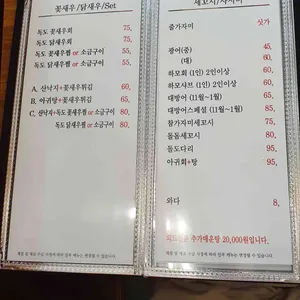 꽃새우/닭새우/Set
독도 꽃새우회 75,
독도 닭새우회 75,
독도 꽃새우찜 or 소금구이 55,
독도 닭새우찜 or 소금구이 65,
A. 산낙지+꽃새우튀김 60,
B. 아귀탕+꽃새우튀김 65,
C. 산낙지+독도 꽃새우찜 or 소금구이 80,
독도 닭새우찜 or 소금구이 80,
줄가자미 싯가
광어(중) 45,
(대) 60,
하모회 (1인) 2인이상 60,
하모샤브 (1인) 2인이상 60,
대방어 (11월~1월) 65,
대방어스페셜 (11월~1월) 85,
참가자미세꼬시 75,
돔돔세꼬시 80,
독도다리 95,
아귀회+탕 95,
와다 8,
추가매운탕 20,000원입니다.